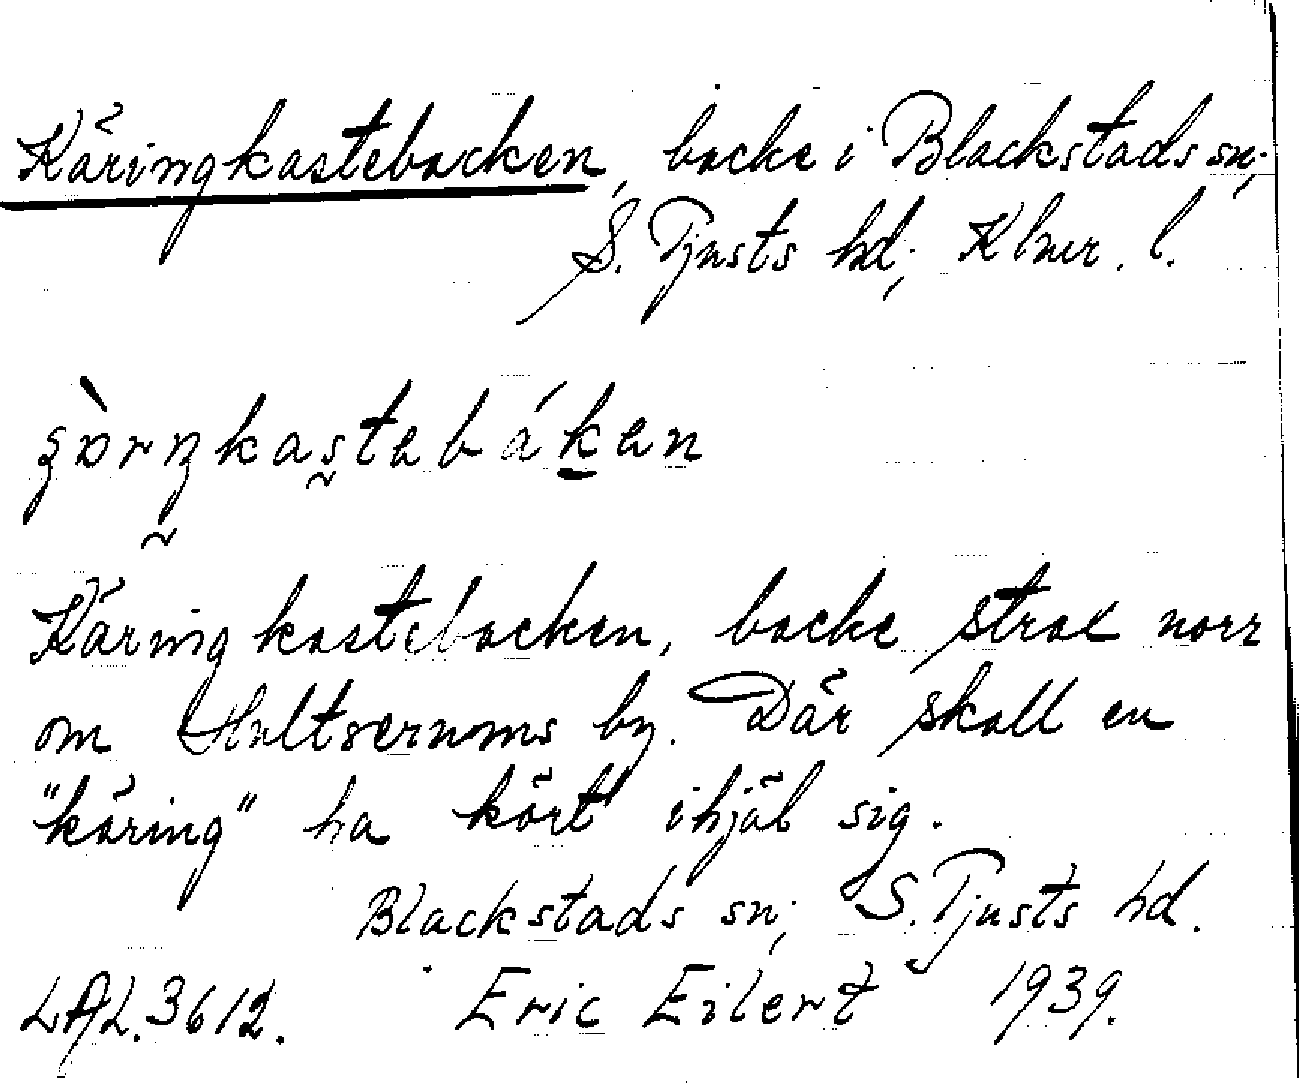 Käringkastebacken, backe i Blackstads sn;
S. Tjusts hd; Klmr. l.
Käringkastebacken, backe strax norr
om Hultserums by. Där skall en
"käring" ha kört ihjäl sig.
Blackstads sn; S. Tjusts hd.
LAL. 3612. Eric Eilert 1939.